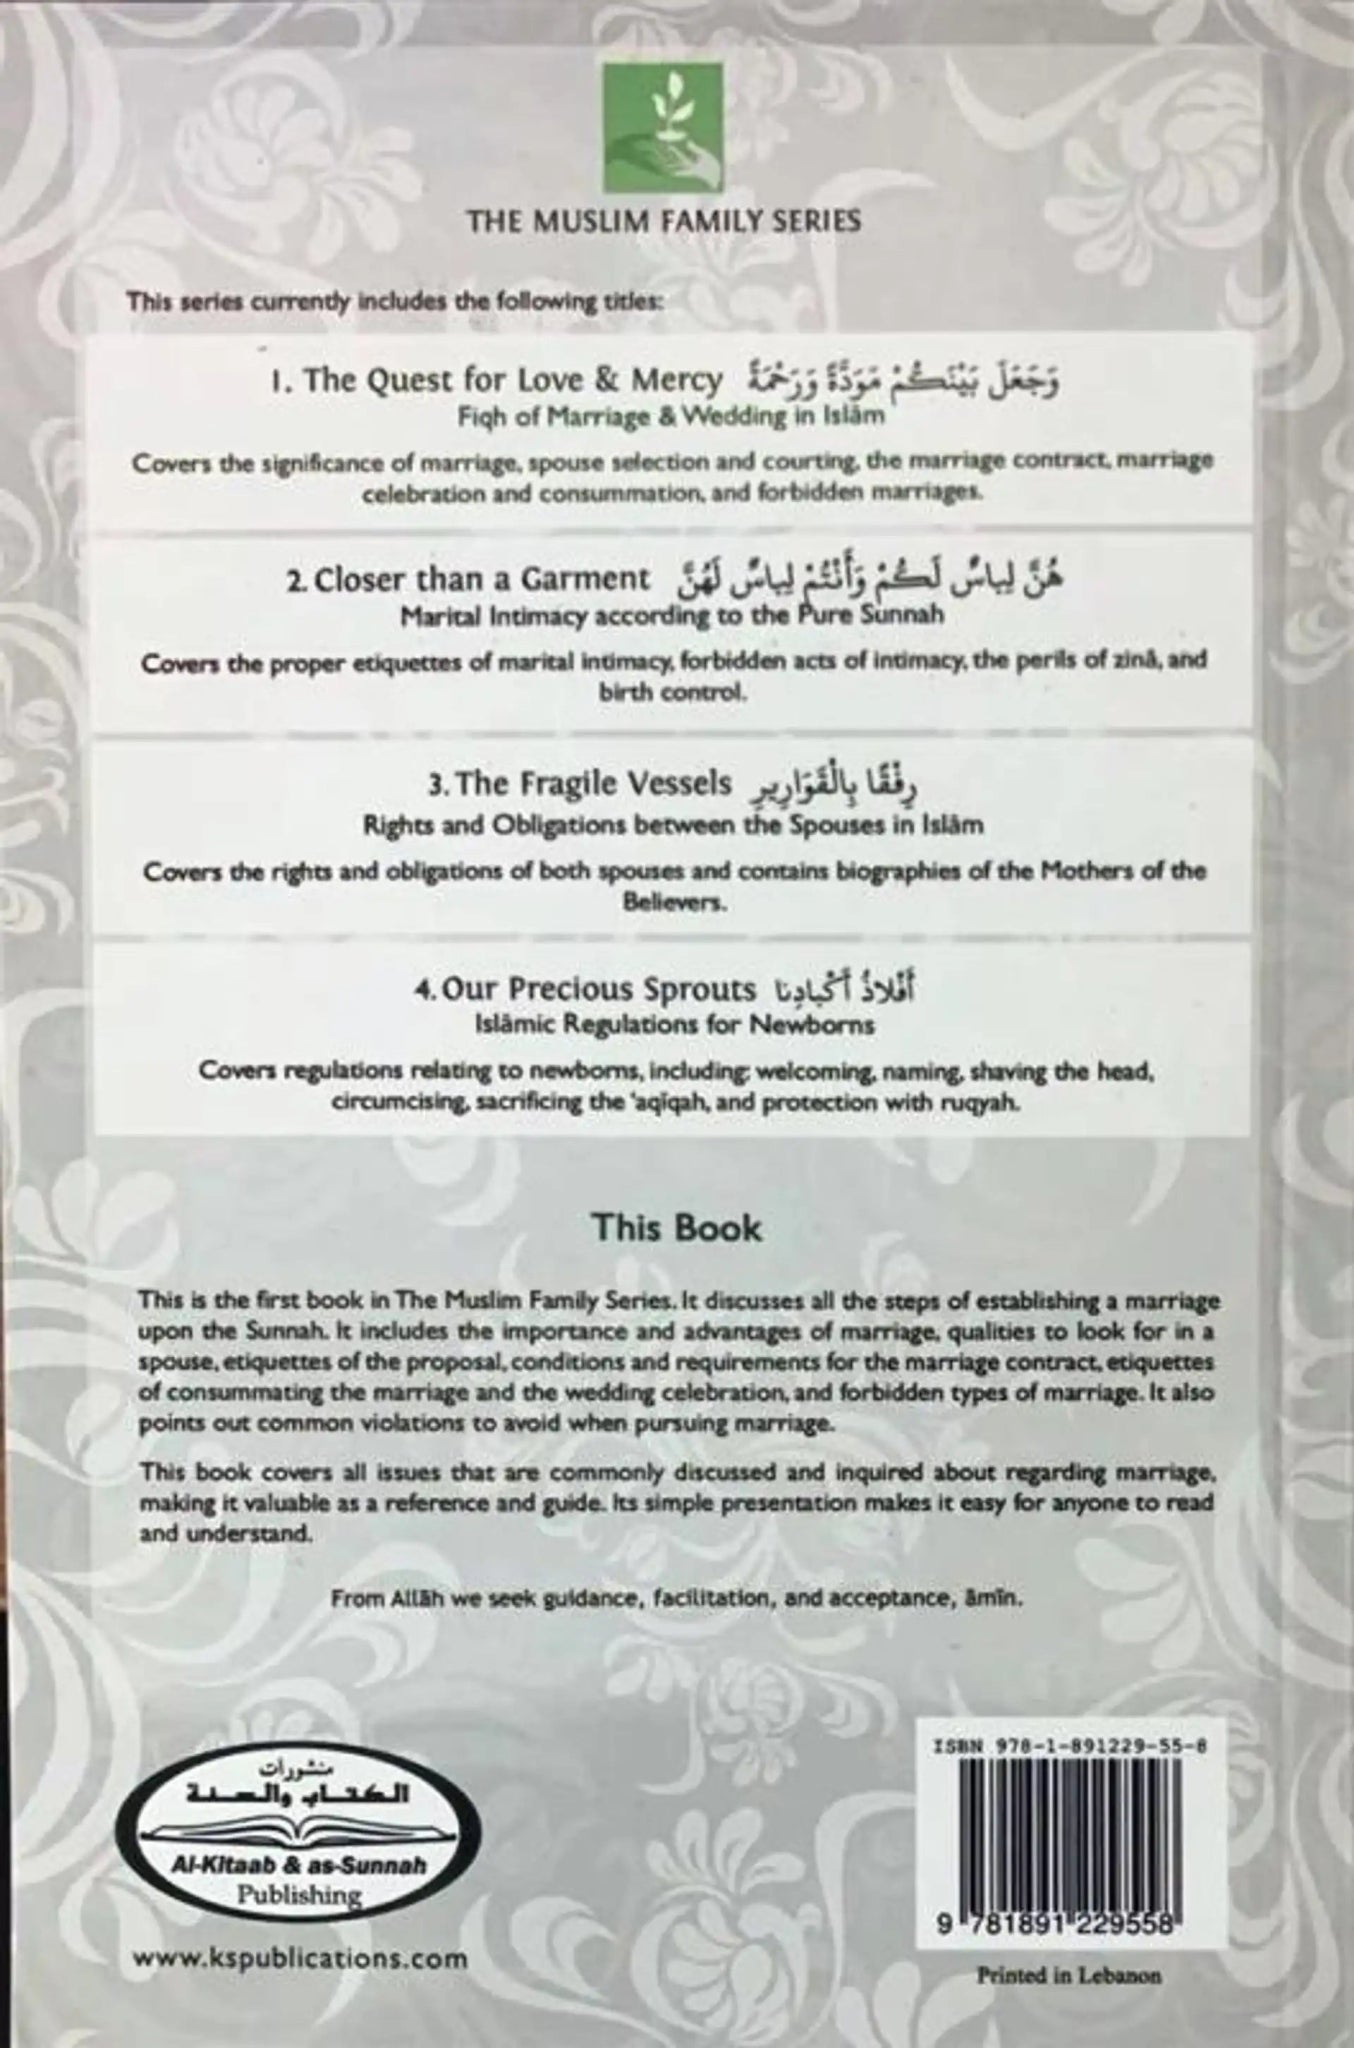 THE MUSLIM FAMILY SERIES
This series currently includes the following titles:
1. The Quest for Love & Mercy وَجَعَلَ بَيْنَكُمْ مَوَدَّةً وَرَحْمَةً
Fiqh of Marriage & Wedding in Islâm
Covers the significance of marriage, spouse selection and courting, the marriage contract, marriage
celebration and consummation, and forbidden marriages.
2. Closer than a Garment هُنَّ لِبَاسٌ لَكُمْ وَأَنْتُمْ لِبَاسٌ لَهُنَّ
Marital Intimacy according to the Pure Sunnah
Covers the proper etiquettes of marital intimacy, forbidden acts of intimacy, the perils of zinâ, and
birth control.
3. The Fragile Vessels رِفْقًا بِالْقَوَارِيرِ
Rights and Obligations between the Spouses in Islâm
Covers the rights and obligations of both spouses and contains biographies of the Mothers of the
Believers.
4. Our Precious Sprouts أَفْلَاذُ أَكْبَادِنَا
Islâmic Regulations for Newborns
Covers regulations relating to newborns, including: welcoming, naming, shaving the head,
circumcising, sacrificing the 'aqîqah, and protection with ruqyah.
This Book
This is the first book in The Muslim Family Series. It discusses all the steps of establishing a marriage
upon the Sunnah. It includes the importance and advantages of marriage, qualities to look for in a
spouse, etiquettes of the proposal, conditions and requirements for the marriage contract, etiquettes
of consummating the marriage and the wedding celebration, and forbidden types of marriage. It also
points out common violations to avoid when pursuing marriage.
This book covers all issues that are commonly discussed and inquired about regarding marriage,
making it valuable as a reference and guide. Its simple presentation makes it easy for anyone to read
and understand.
From Allâh we seek guidance, facilitation, and acceptance, âmîn.
منشورات
الكتاب والسنة
Al-Kitaab & as-Sunnah
Publishing
www.kspublications.com
ISBN 978-1-891229-55-8
9 781891 229558
Printed in Lebanon